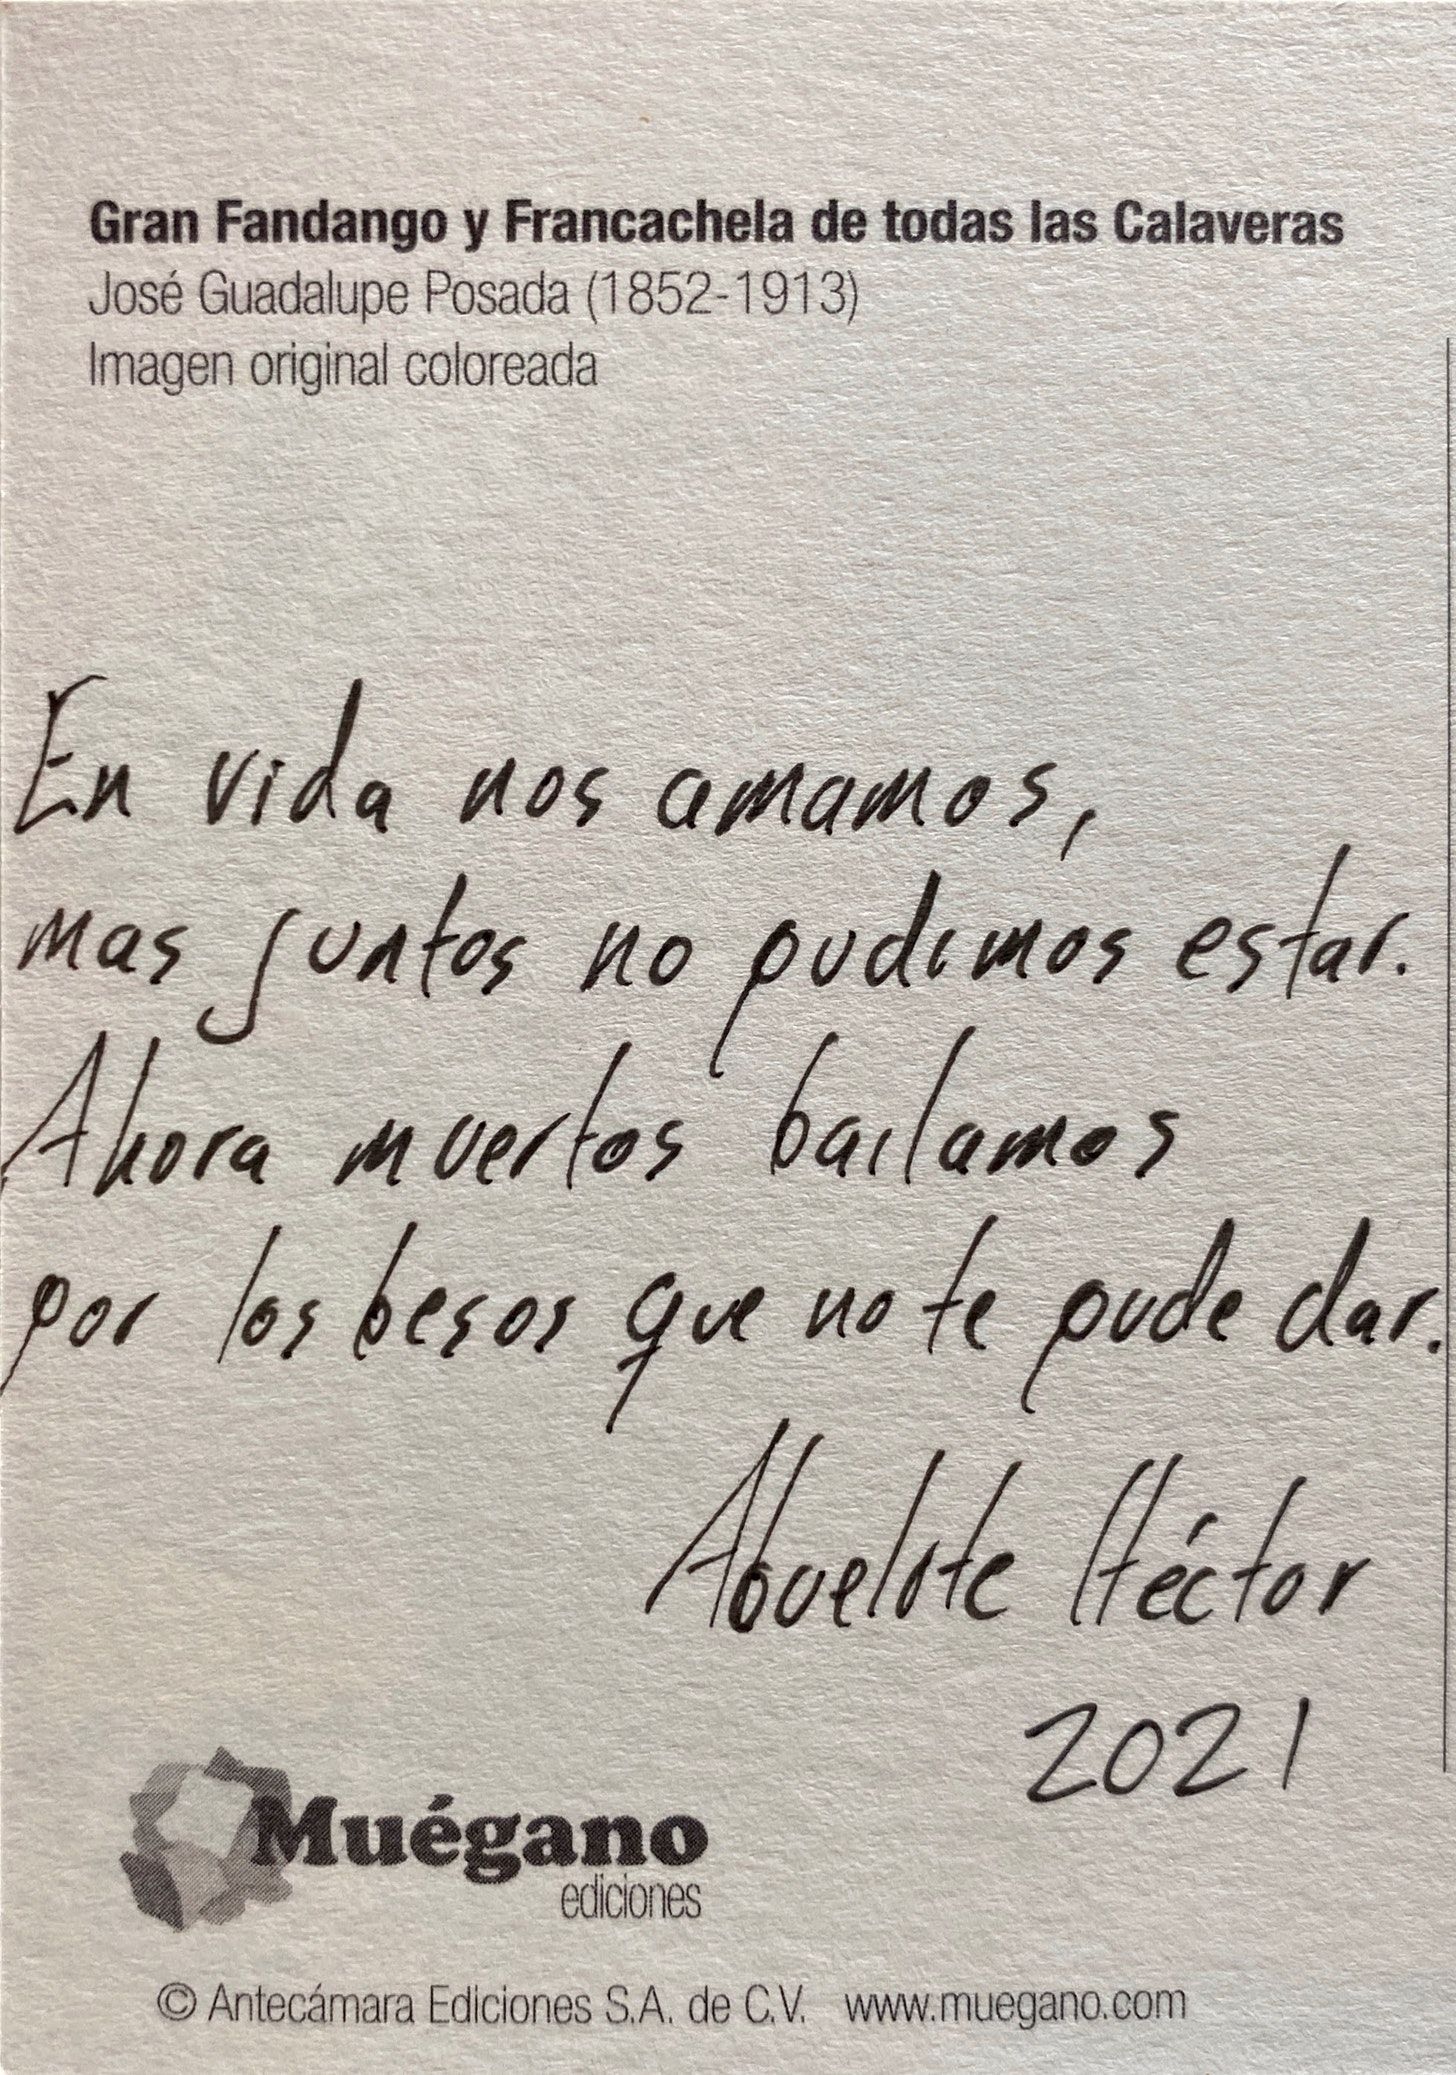 Gran Fandango y Francachela de todas las Calaveras
José Guadalupe Posada (1852-1913)
Imagen original coloreada
En vida nos amamos,
mas juntos no pudimos estar.
Ahora muertos bailamos
por los besos que no te pude dar.
Abuelote Héctor
2021
Muégano
ediciones
© Antecámara Ediciones S.A. de C.V. www.muegano.com